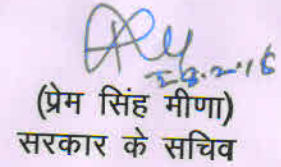 (प्रेम सिंह मीणा)
सरकार के सचिव